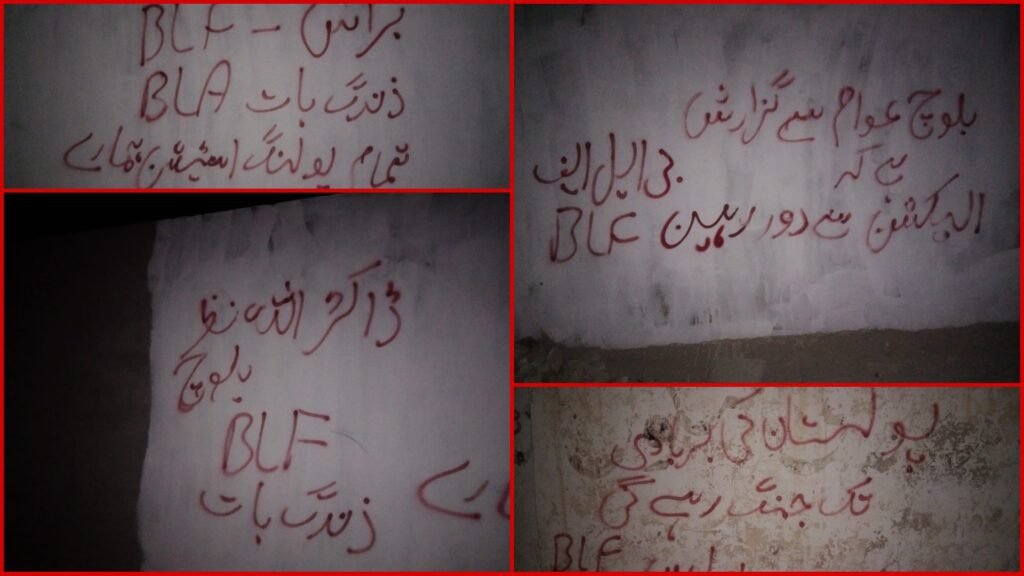 براس – BLF
ذندگ بات BLA
تمام پولنگ اسٹیشن
بلوچ عوام سے گزارش
ہے کہ بی ایل ایف
الیکشن سے دور رہین BLF
ڈاکٹر اللہ نظر
بلوچ
BLF
ذندگ بات
کی بربادی
تک جنگ رہے گی
BLF